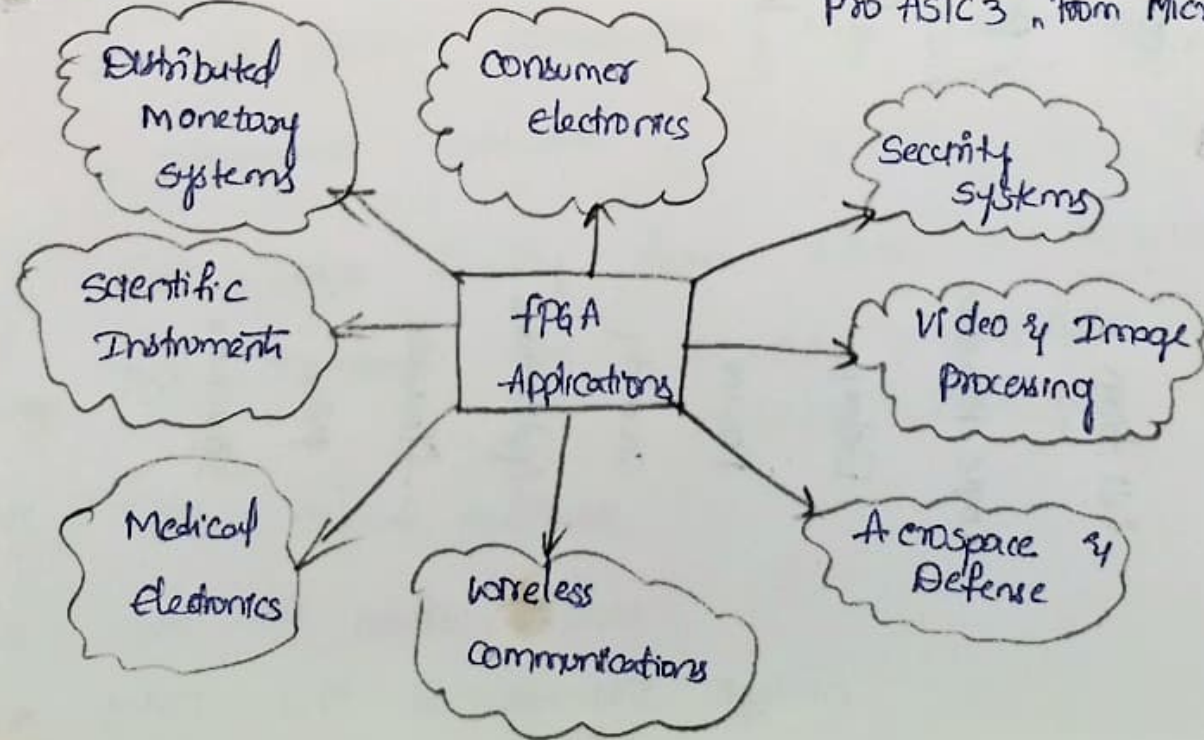 Pro ASIC3, from Mic
Distributed
Monetary
Systems
Consumer
electronics
Security
Systems
Scientific
Instruments
FPGA
Applications
Video & Image
Processing
Medical
Electronics
Wireless
Communications
Aerospace &
Defense